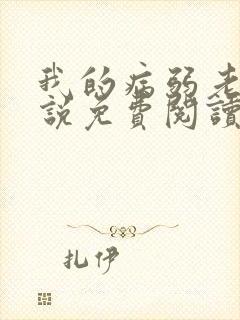 我的病弱老
説免費閱讀
扎伊